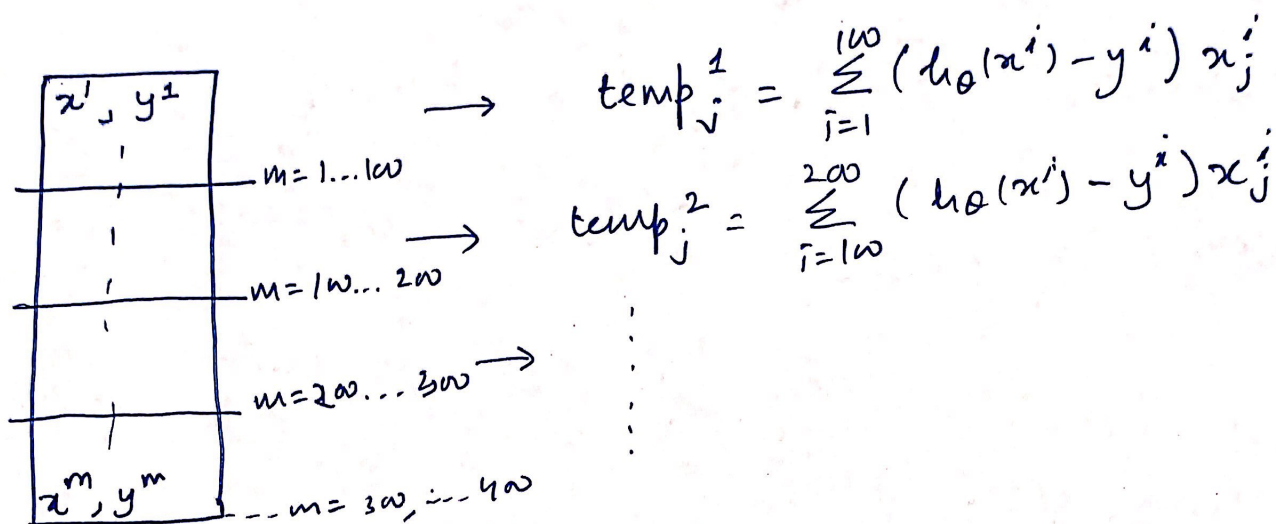 x¹, y¹
m = 1...100
m = 100... 200
m = 200... 300
xᵐ, yᵐ
m = 300, ... 400
→ temp_j^1 = Σ_{i=1}^{100} (h_θ(x^i) - y^i) x_j^i
→ temp_j^2 = Σ_{i=100}^{200} (h_θ(x^i) - y^i) x_j^i
→